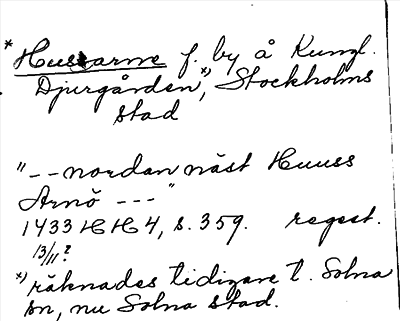 * Husarne f. by å Kungl.
Djurgården *), Stockholms
stad
"-- nordan näst Huuss
Arnö ---"
1433 HH 4, s. 359. regest.
13/11?
*) räknades tidigare t. Solna
sn, nu Solna stad.